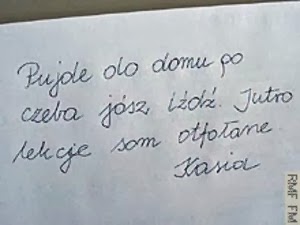 Pujde do domu po
czeba jósz, iźdź. Jutro
lekcje som otfołane.
Kasia
RMF FM